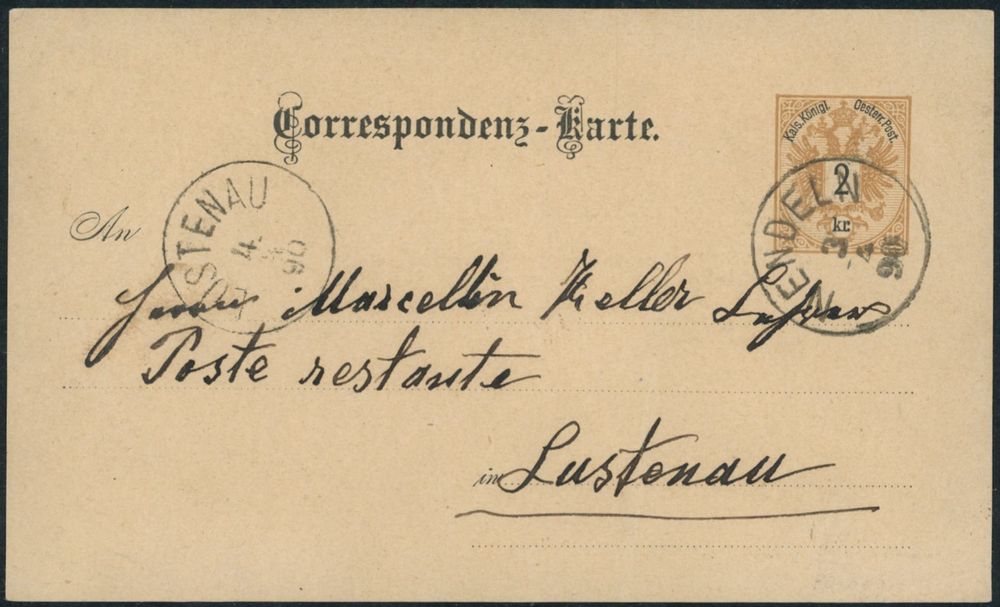 Correspondenz-Karte.
Kais. Königl. Oesterr. Post.
2
kr.
NENDELN
3
4
90
LUSTENAU
4
4
90
An
Herrn Marcellin Keller Lehrer
Poste restante
in Lustenau